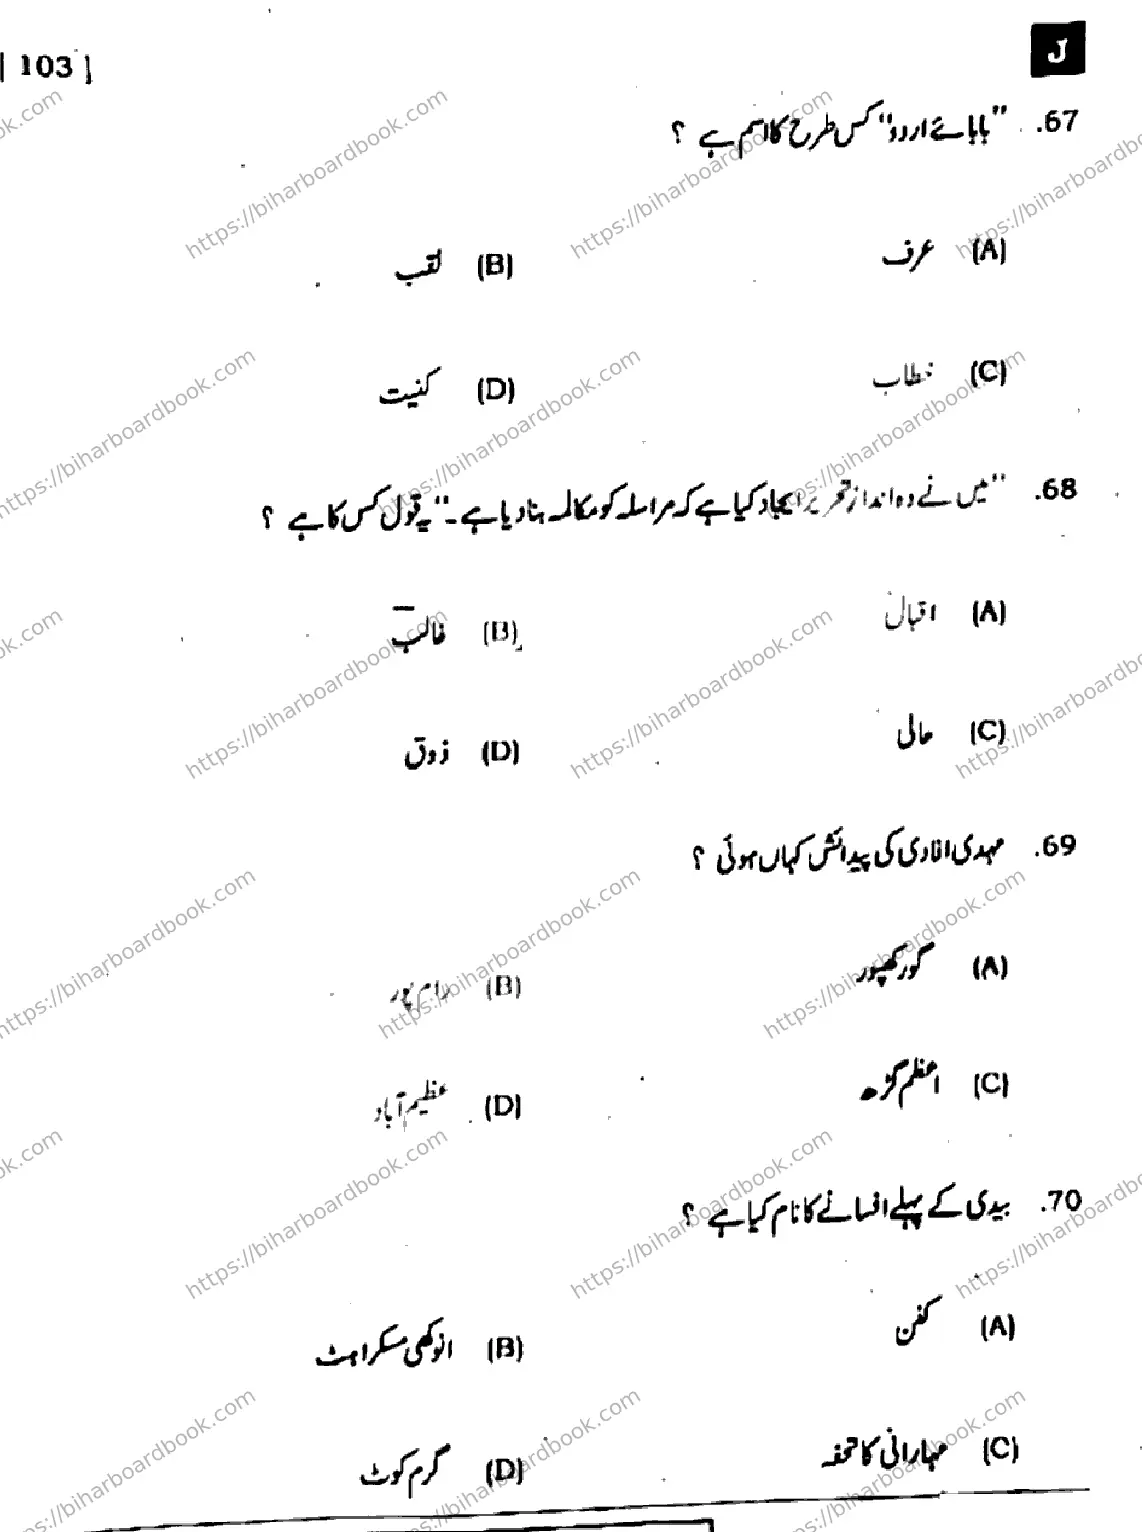 [ 103 ]
J
67. "بابائے اردو" کس طرح کا اسم ہے ؟
(A) عرف
(B) لقب
(C) خطاب
(D) کنیت
68. "میں نے وہ انداز تحریر ایجاد کیا ہے کہ مراسلہ کو مکالمہ بنا دیا ہے۔" یہ قول کس کا ہے ؟
(A) اقبال
(B) غالب
(C) حالی
(D) ذوق
69. مہدی افادی کی پیدائش کہاں ہوئی ؟
(A) گورکھپور
(B) رام پور
(C) اعظم گڑھ
(D) عظیم آباد
70. بیدی کے پہلے افسانے کا نام کیا ہے ؟
(A) کفن
(B) انوکھی مسکراہٹ
(C) مہارانی کا تحفہ
(D) گرم کوٹ
https://biharboardbook.com